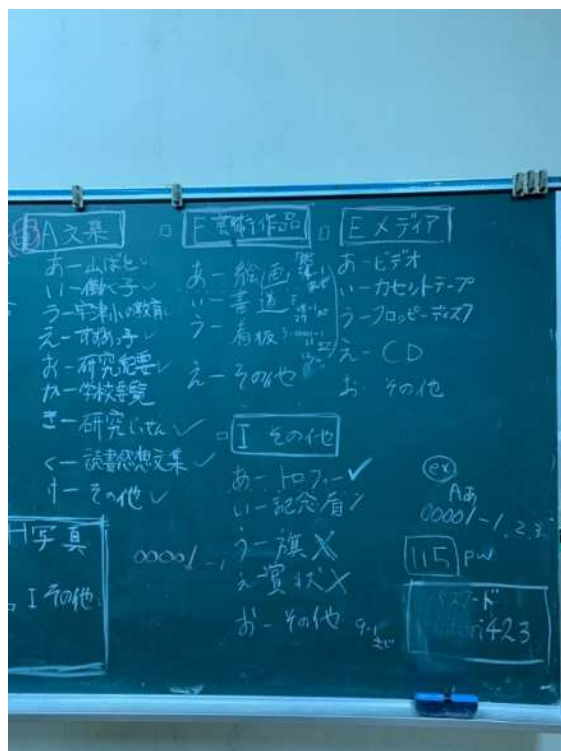 A 文集
あー山ばと ✓
いー働く子 ✓
うー宇津小の教育
えーすずめっ子 ✓
おー研究紀要 ✓
かー学校要覧
きー研究じっせん ✓
くー読書感想文集 ✓
けーその他 ✓
H 写真
I その他
F 芸術作品
あー絵画
いー書道
うー看板
えーその他
I その他
あートロフィー ✓
いー記念盾
うー旗 X
えー賞状 X
おーその他
00001-1
E メディア
あービデオ
いーカセットテープ
うーフロッピーディスク
えーCD
お その他
ex
Aあ
00001-1, 2, 3
115 pw
パスワード